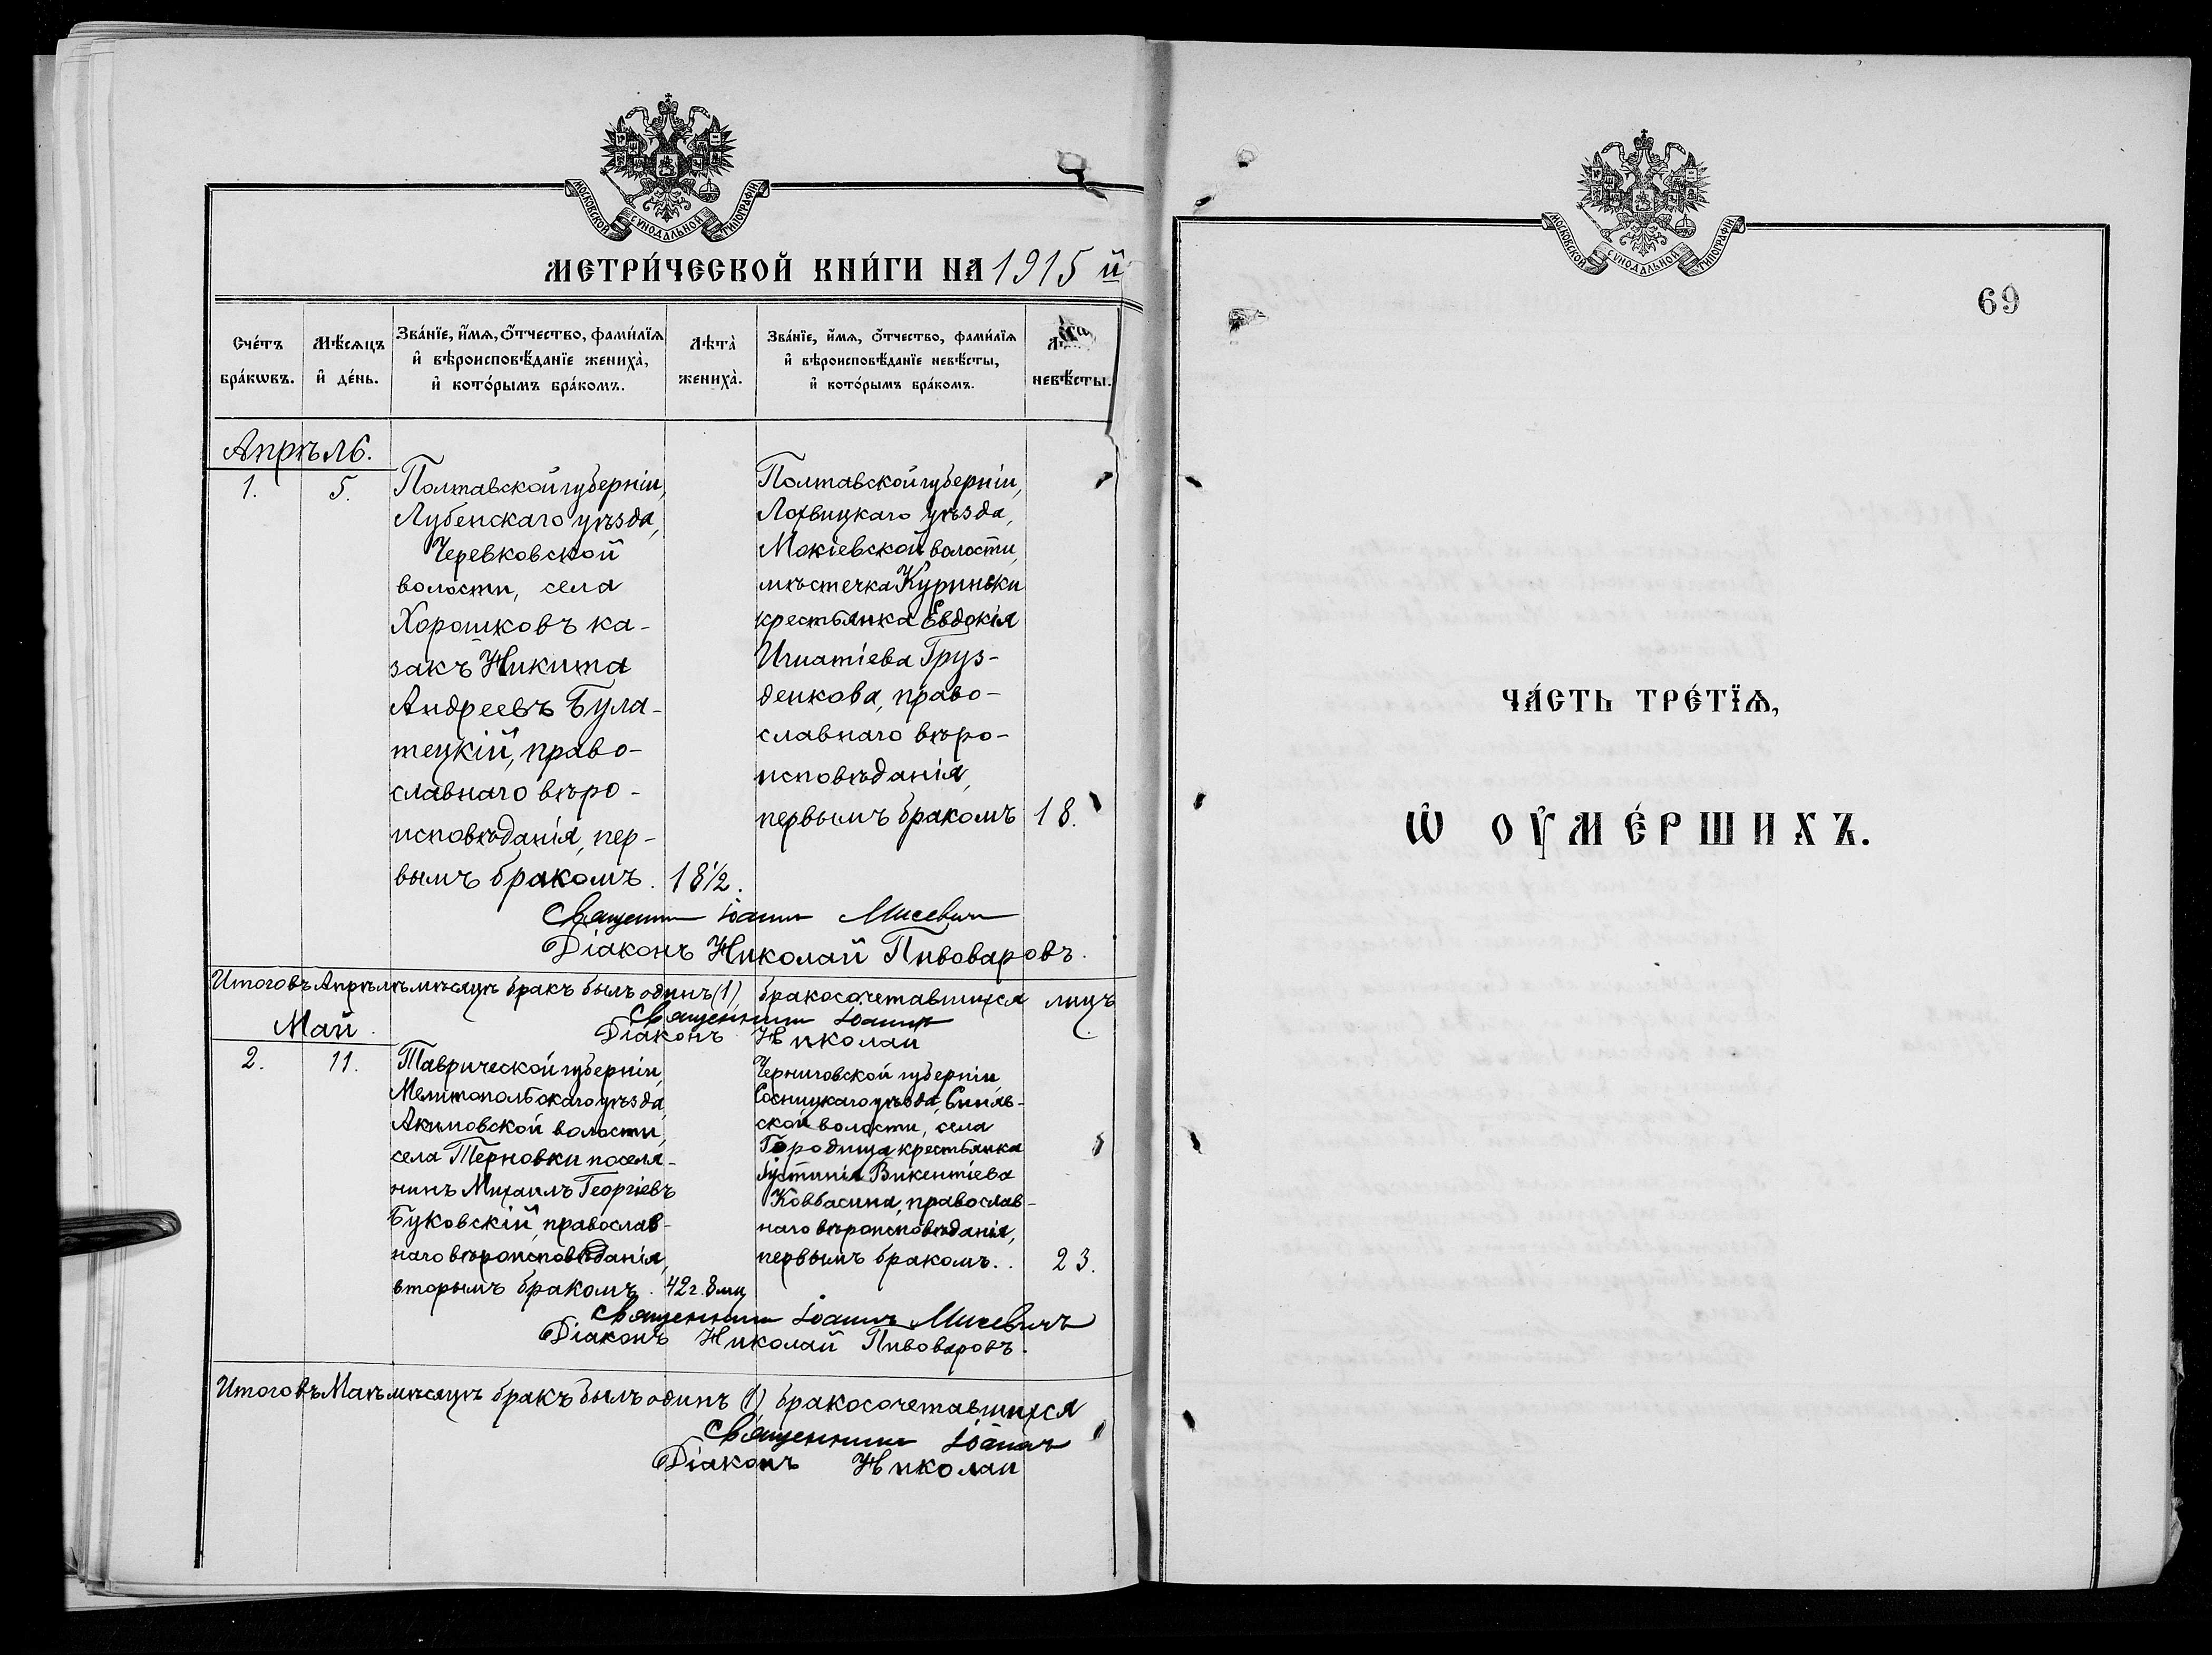 МОСКОВСКОЙ СѴНОДАЛЬНОЙ ТИПОГРАФІИ
МЕТРИ́ЧЕСКОЙ КНИ́ГИ НА 1915 й
Сче́тъ бра́кѡвъ.
Мѣ́сѧцъ и҆ де́нь.
Зва́нїе, и҆́мѧ, ѻ҆́тчество, фами́лїѧ
и҆ вѣроисповѣ́данїе жениха̀,
и҆ кото́рымъ бра́комъ.
Лѣта̀ жениха̀.
Зва́нїе, и҆́мѧ, ѻ҆́тчество, фами́лїѧ
и҆ вѣроисповѣ́данїе невѣ́сты,
и҆ кото́рымъ бра́комъ.
невѣ́сты.
Апрѣль.
1. 5.
Полтавской губерніи,
Лубенскаго уѣзда,
Черевковской
волости, села
Хорошковъ ка-
закъ Никита
Андреевъ Була-
тецкій, право-
славнаго вѣро-
исповѣданія, пер-
вымъ бракомъ. 18½.
Полтавской губерніи,
Лохвицкаго уѣзда,
Мокіевской волости,
мѣстечка Куриньки
крестьянка Евдокія
Игнатіева Груз-
денкова, право-
славнаго вѣро-
исповѣданія,
первымъ бракомъ 18.
Священник Іоанн Мисевич
Діаконъ Николай Пивоваровъ.
Итого въ Апрѣлѣ мѣсяцѣ бракъ былъ одинъ (1), бракосочетавшихся лицъ
Священник Іоанн
Діаконъ Николай
Май.
2. 11.
Таврической губерніи,
Мелитопольскаго уѣзда,
Акимовской волости,
села Терновки поселя-
нинъ Михаилъ Георгіевъ
Буковскій, православ-
наго вѣроисповѣданія,
вторымъ бракомъ. 42 г. 8 мц
Черниговской губерніи,
Сосницкаго уѣзда, Синяв-
ской волости, села
Городища крестьянка
Іустинія Викентіева
Ковбасина, православ-
наго вѣроисповѣданія,
первымъ бракомъ. 23.
Священник Іоаннъ Мисевичъ
Діаконъ Николай Пивоваровъ.
Итого въ Маѣ мѣсяцѣ бракъ былъ одинъ (1) бракосочетавшихся
Священник Іоанн
Діаконъ Николай
МОСКОВСКОЙ СѴНОДАЛЬНОЙ ТИПОГРАФІИ
69
ЧА́СТЬ ТРЕ́ТЇѦ,
Ѡ҆ ОУ҆МЕ́РШИХЪ.